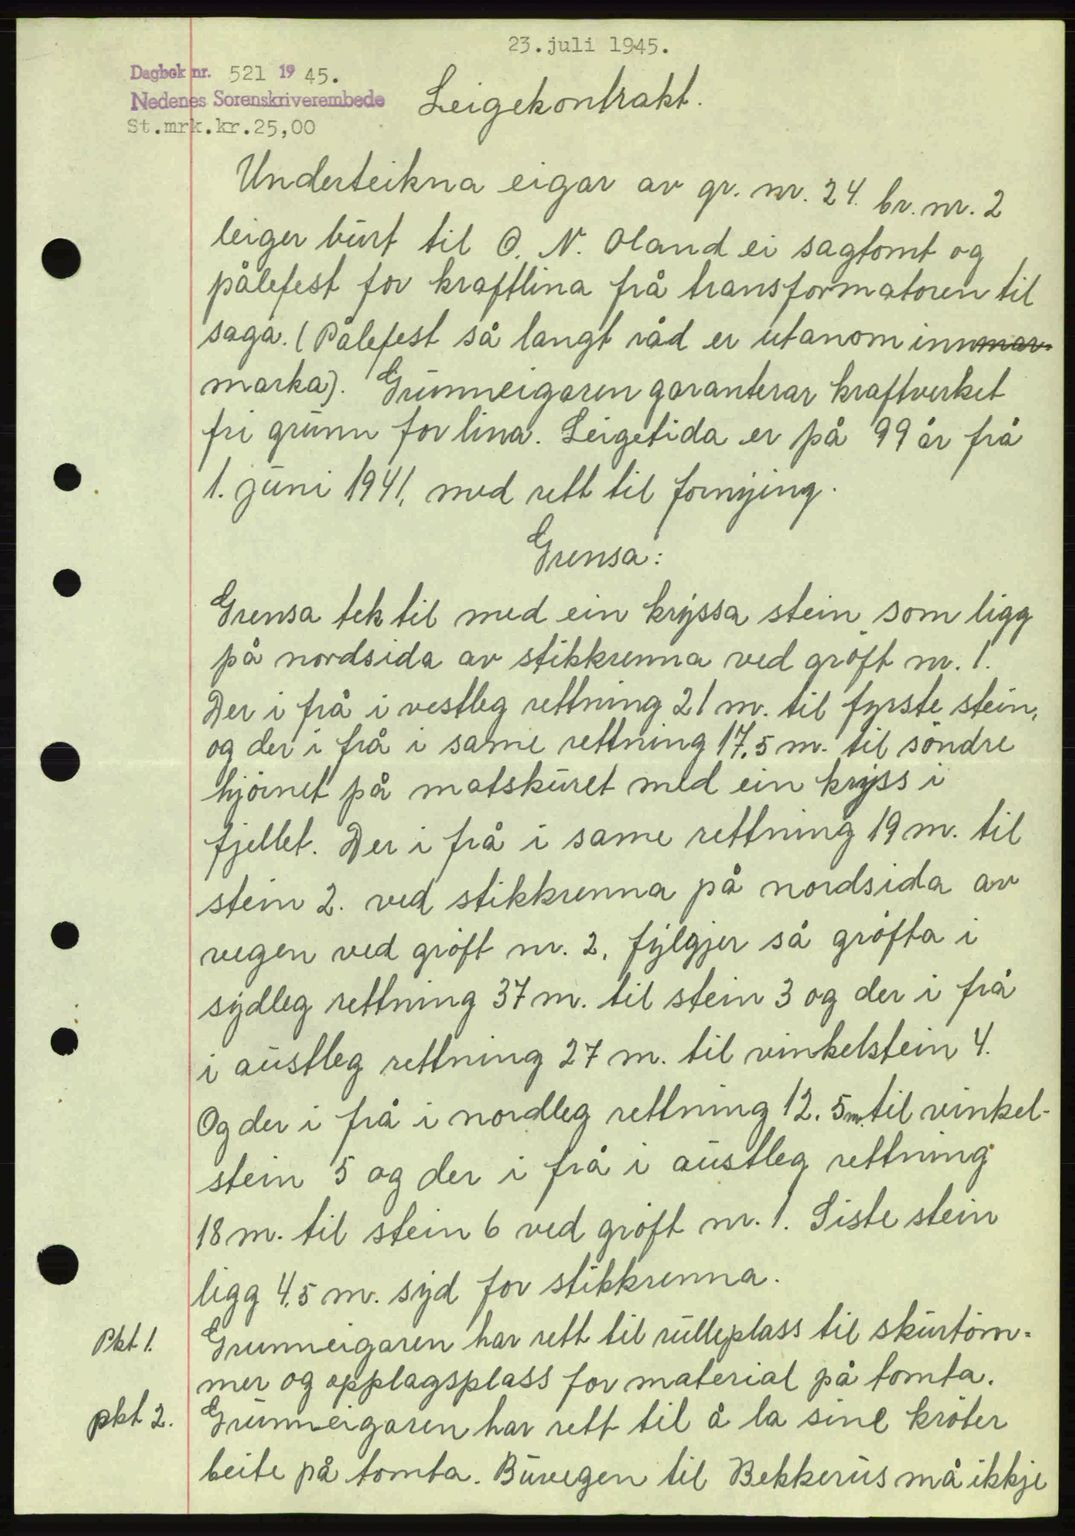 23. juli 1945.
Dagbok nr. 521 19 45.
Nedenes Sorenskriverembede
St.mrk.kr.25,00
Leigekontrakt.
Underteikna eigar av gr. nr. 24 br. nr. 2
leiger burt til O. N. Oland ei sagtomt og
pålefest for kraftlina frå transformatoren til
saga. (Pålefest så langt råd er utanom innmar-
marka). Grunneigaren garanterar kraftverket
fri grunn for lina. Leigetida er på 99 år frå
1. juni 1941, med rett til fornying.
Grensa:
Grensa tek til med ein kryssa stein som ligg
på nordsida av stikkrenna ved gröft nr. 1.
Der i frå i vestleg rettning 21 m. til fyrste stein,
og der i frå i same rettning 17,5 m. til söndre
hjörnet på matskuret med ein kryss i
fjellet. Der i frå i same rettning 19 m. til
stein 2. ved stikkrenna på nordsida av
vegen ved gröft nr. 2, fylgjer så gröfta i
sydleg rettning 37 m. til stein 3 og der i frå
i austleg rettning 27 m. til vinkelstein 4.
Og der i frå i nordleg rettning 12.5 m. til vinkel-
stein 5 og der i frå i austleg rettning
18 m. til stein 6 ved gröft nr. 1. Siste stein
ligg 4,5 m. syd for stikkrenna.
Pkt 1. Grunneigaren har rett til rulleplass til skurtöm-
mer og opplagsplass for material på tomta.
pkt 2. Grunneigaren har rett til å la sine kröter
beite på tomta. Buvegen til Bekkerus må ikkje